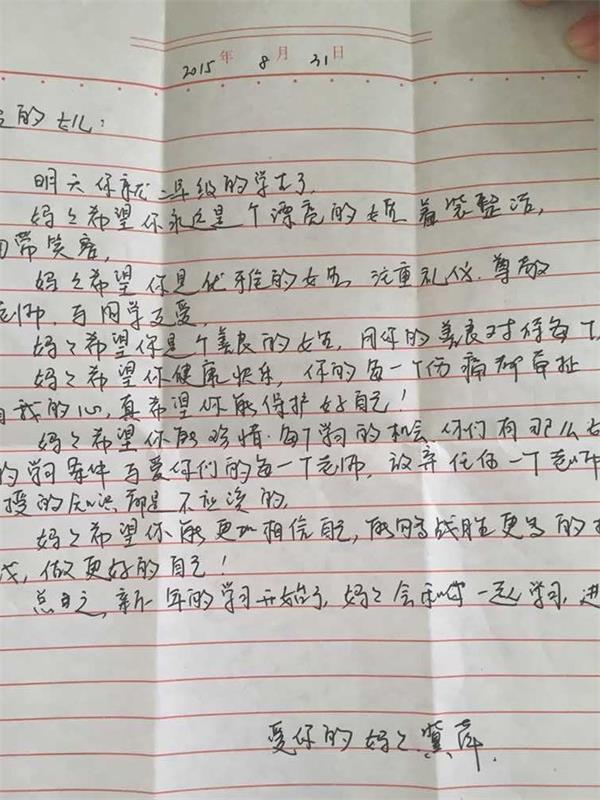 2015年 8月 31日
的女儿：
明天你就二年级的学生了，
妈妈希望你永远是个漂亮的女孩 着装整洁，
带笑容，
妈妈希望你是优雅的女孩 注重礼仪、尊敬
老师、与同学友爱，
妈妈希望你是个善良的女孩，用你的善良对待每个
妈妈希望你健康快乐，你的每一个伤痛都牵扯
我的心，真希望你能保护好自己！
妈妈希望你能珍惜每个学习的机会 你们有那么
的学习条件与爱你们的每一个老师，放弃任何一个老师
授的知识都是不应该的，
妈妈希望你能更加相信自己，能够战胜更多的
战，做更好的自己！
总之，新一年的学习开始了，妈妈会和你一起学习，进
爱你的妈妈